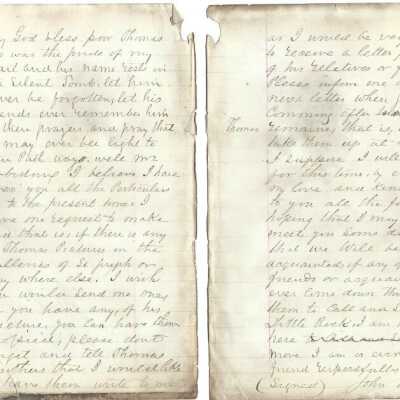 God bless poor Thomas
was the pride of my
and his name Rest in
Silent Tomb. let him
ver be forgotten, let his
ends ever remember him
their prayers and pray that
may ever bee light to
Path ways. well Mr
I beleave I have
you all the Particulars
to the present hour I
ave one request to make
that is if there is any
Thomas Pictures in the
alleries of St Joseph or
ny where else. I wish
ou would send me one
you have any of his
icture, you can have them
please dont
rget and tell Thomas
others that I would like
have them write to me
as I would be
to Receive a letter
of his Relatives or
Pleas inform me
never letter when
Comming after
Thomas
remaines, that is,
take them up at
I suppose I will
for this time, by
my love and kind
to you all the
hoping that I may
meet you some d
that we will be
acquainted if any of
friends or acquai
ever come down th
them to call and
Little Rock I am
here
more I am as ever
friend Respectfully
(Signed) John